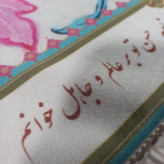 من تو را عالم و جاهل خوانم